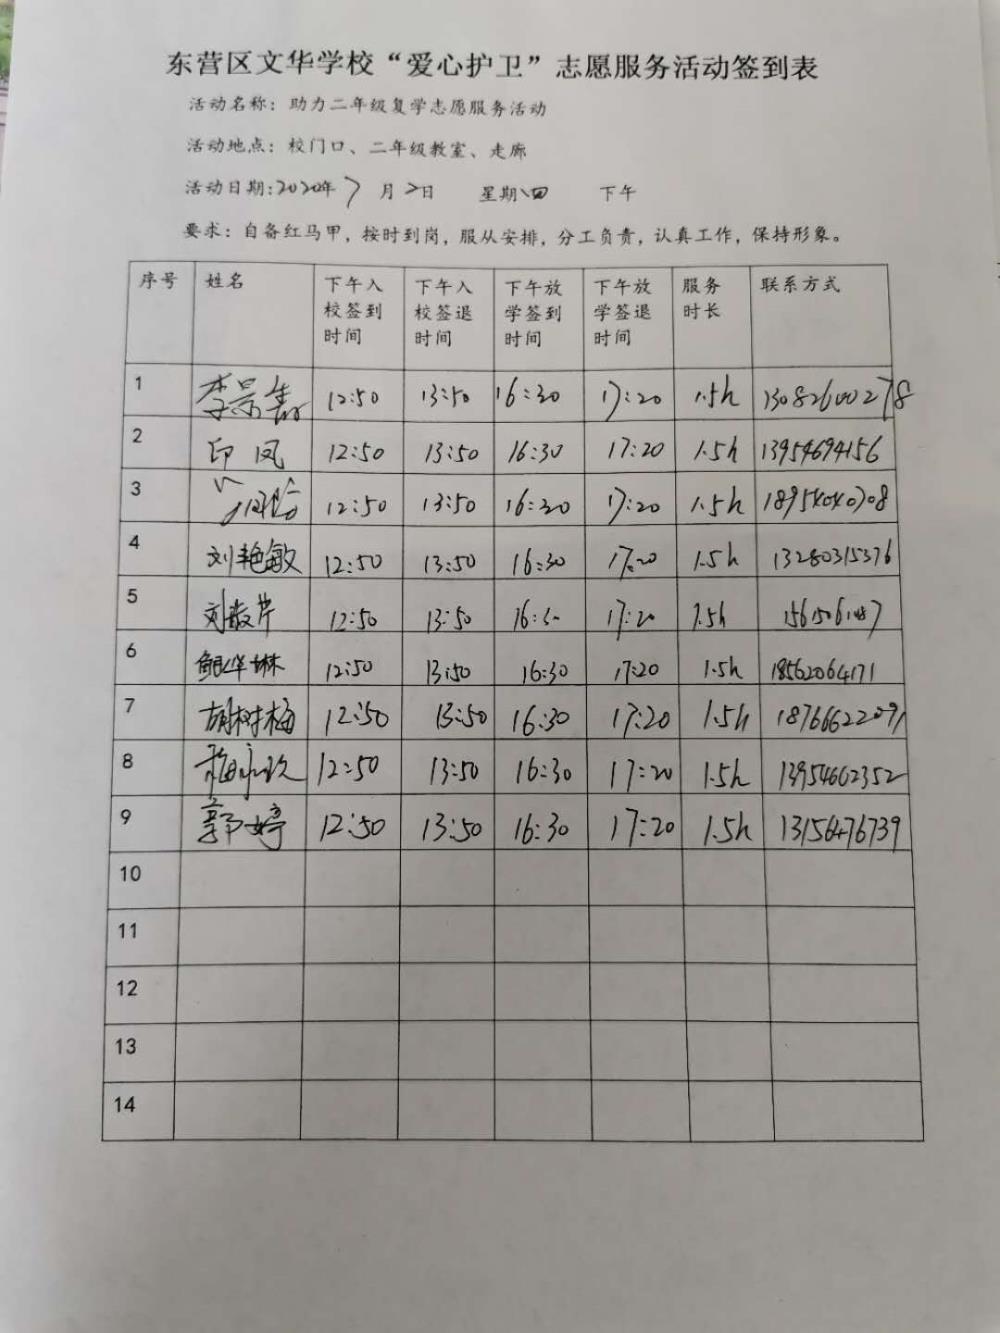 东营区文华学校“爱心护卫”志愿服务活动签到表
活动名称：助力二年级复学志愿服务活动
活动地点：校门口、二年级教室、走廊
活动日期：2020年 7 月 2日 星期四 下午
要求：自备红马甲，按时到岗，服从安排，分工负责，认真工作，保持形象。
序号 姓名 下午入校签到时间 下午入校签退时间 下午放学签到时间 下午放学签退时间 服务时长 联系方式
1 12:50 13:50 16:30 17:20 1.5h 13082600278
2 印凤 12:50 13:50 16:30 17:20 1.5h 13954694156
3 12:50 13:50 16:30 17:20 1.5h
4 刘艳敏 12:50 13:50 16:30 17:20 1.5h 13280315376
5 12:50 13:50 16:30 17:20 1.5h
6 12:50 13:50 16:30 17:20 1.5h 18562064171
7 胡树梅 12:50 13:50 16:30 17:20 1.5h 18766622091
8 12:50 13:50 16:30 17:20 1.5h 13954662352
9 郭婷 12:50 13:50 16:30 17:20 1.5h 13156476739
10
11
12
13
14